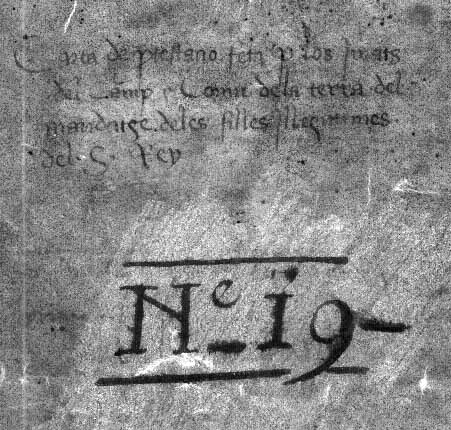 Carta de prestano feta p los jurats
del Camp e Comu dela terra del
maridatge deles filles illegitimes
del S. Rey
Nº 19